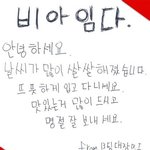 비아임다.
안녕하세요.
날씨가 많이 쌀쌀해졌습니다.
프롯하게 입고 다니세요.
맛있는거 많이 드시고
명절 잘 보내세요.
from